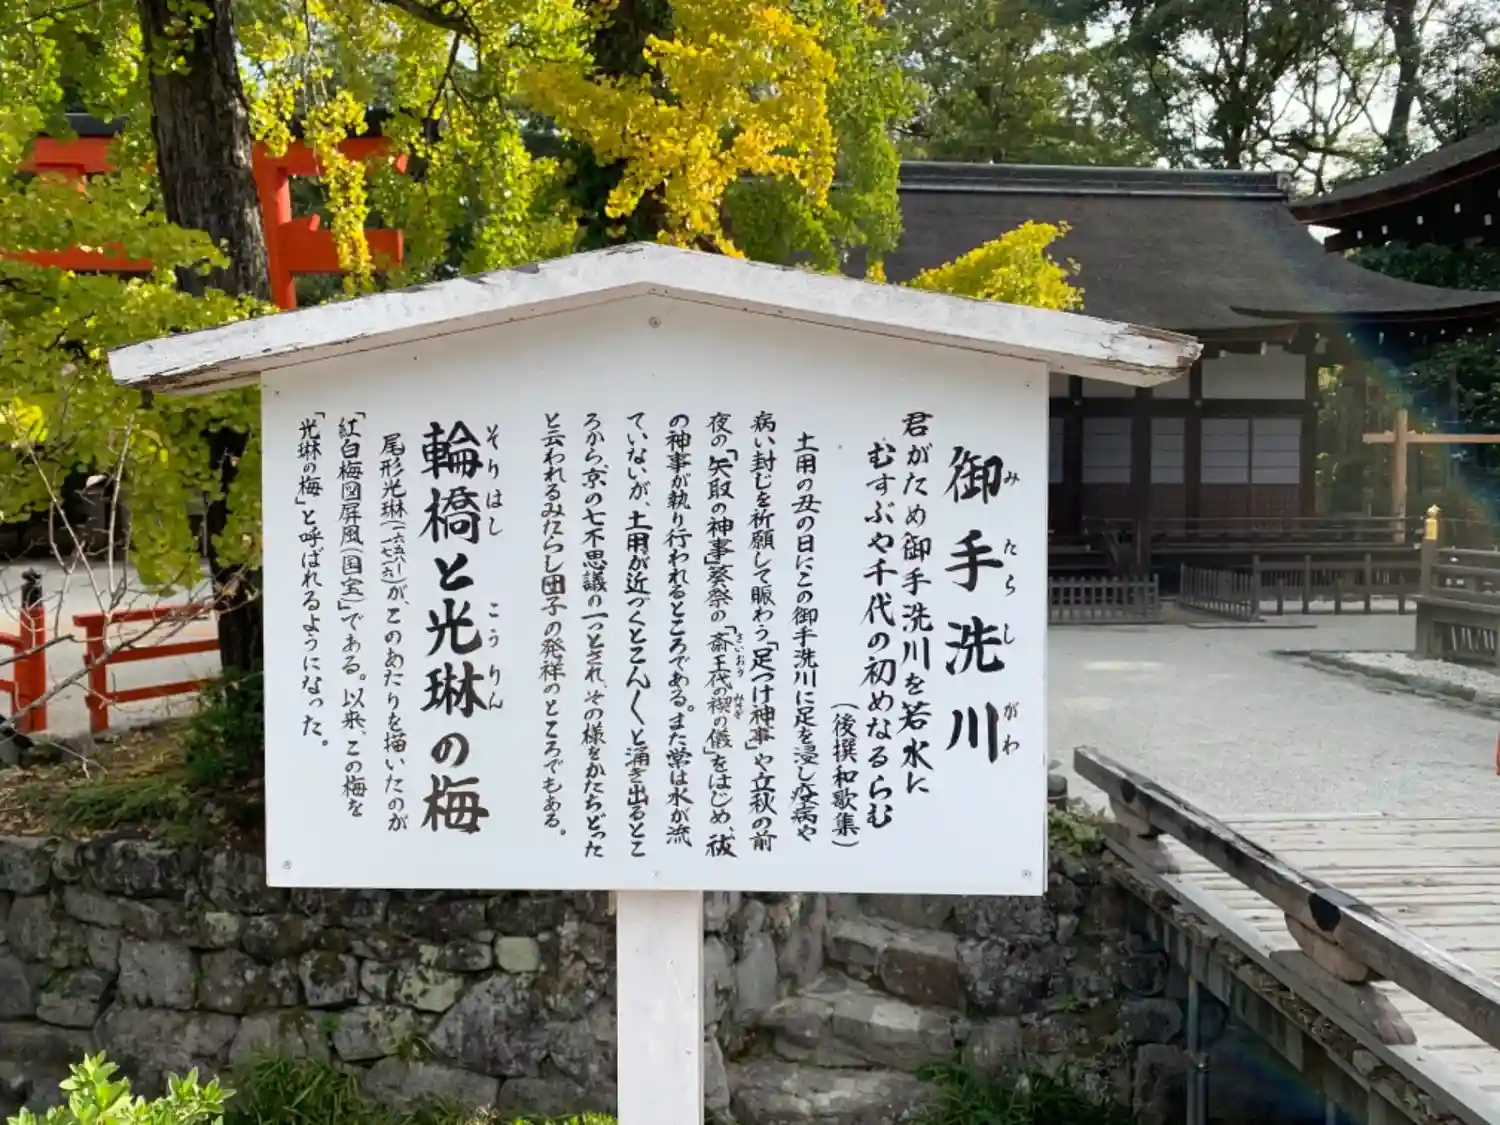 御手洗川
みたらしがわ
君がため御手洗川を若水に
むすぶや千代の初めなるらむ
(後撰和歌集)
土用の丑の日にこの御手洗川に足を浸し疫病や
病い封じを祈願して賑わう「足つけ神事」や立秋の前
夜の「矢取の神事」葵祭の「斎王代の禊の儀」をはじめ、祓
さいおう みそぎ
の神事が執り行われるところである。また常は水が流
ていないが、土用が近づくとこんく と涌き出るとこ
ろから、京の七不思議の一つとされ、その様をかたちどった
と云われるみたらし団子の発祥のところでもある。
輪橋と光琳の梅
そりはし こうりん
尾形光琳(一六五八~一七一六)が、このあたりを描いたのが
「紅白梅図屏風(国宝)」である。以来、この梅を
「光琳の梅」と呼ばれるようになった。